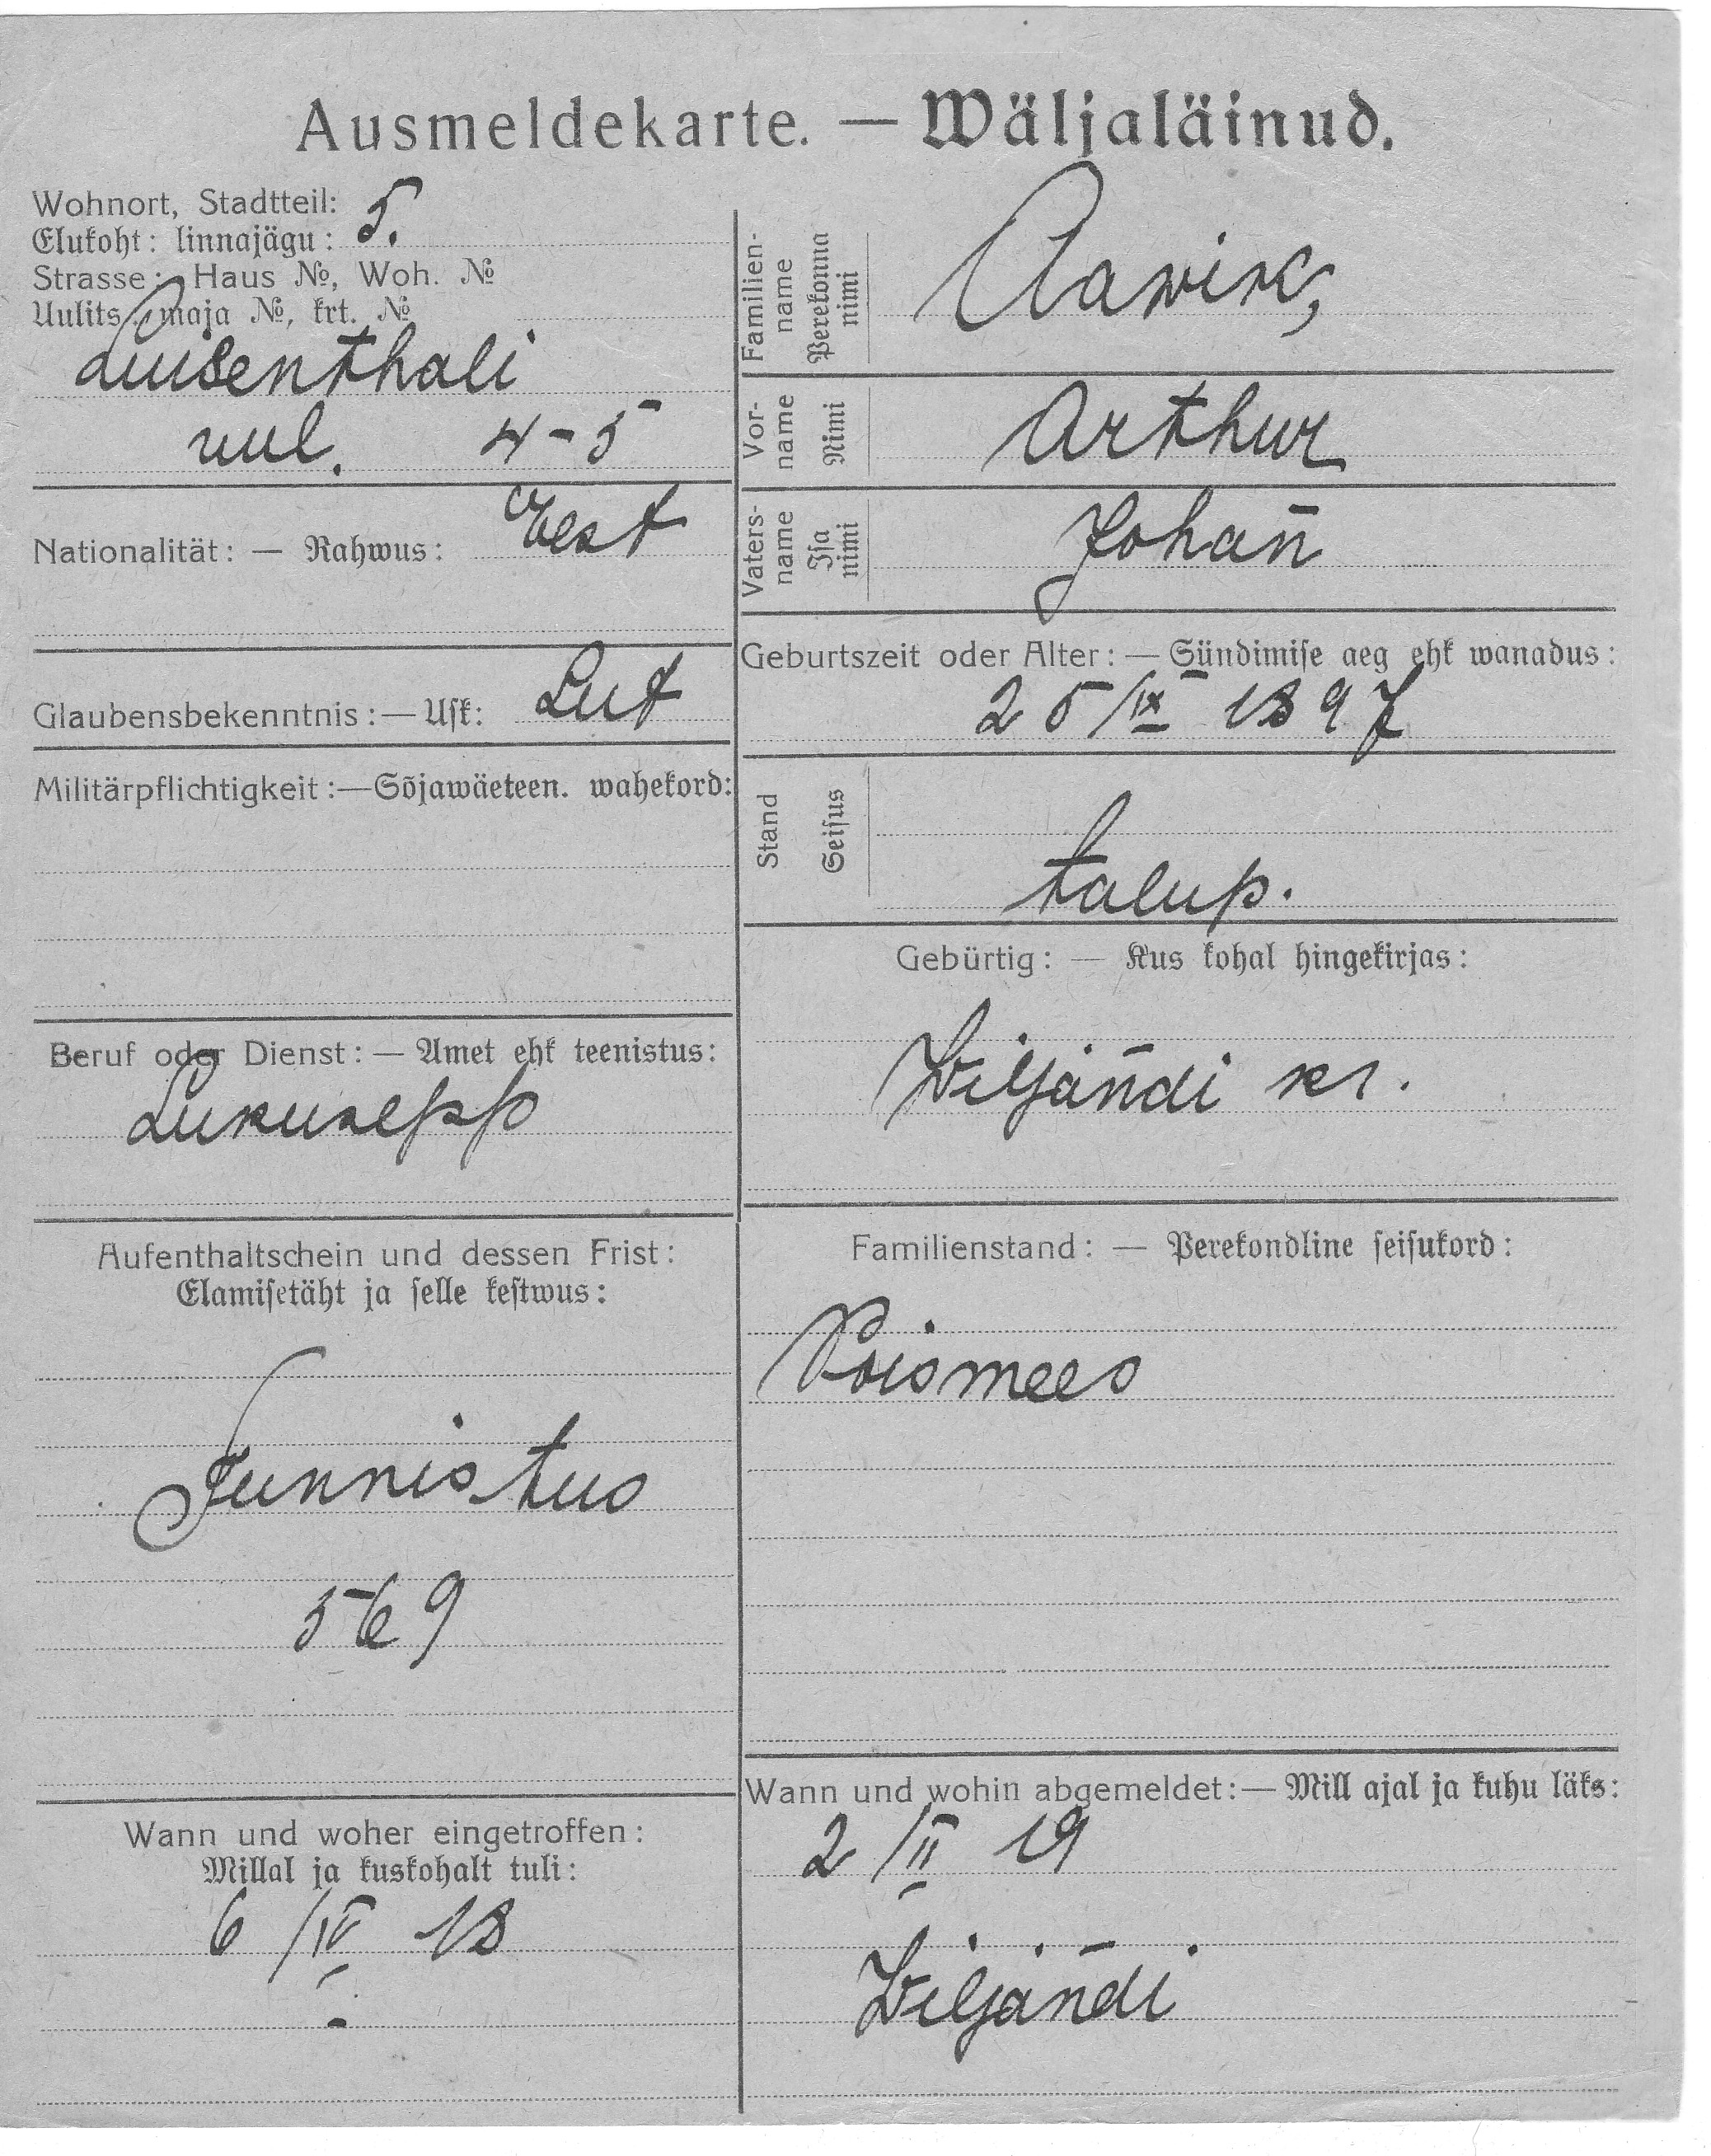 Ausmeldekarte. — Wäljaläinud.
Wohnort, Stadtteil: 5.
Elukoht: linnajägu:
Strasse: Haus №, Woh. №
Uulits, maja №, krt. №
Luisenthali
uul. 4-5
Nationalität: — Rahwus: Eest
Glaubensbekenntnis: — Usk: Lut
Militärpflichtigkeit: — Sõjawäeteen. wahekord:
Beruf oder Dienst: — Amet ehk teenistus:
Lukusepp
Aufenthaltschein und dessen Frist:
Elamisetäht ja selle kestwus:
Tunnistus
569
Wann und woher eingetroffen:
Millal ja kuskohalt tuli:
6/IV 18
-
Familien-
name
Perekonna
nimi
Aawik,
Vor-
name
Nimi
Arthur
Vaters-
name
Isa
nimi
Johan̄
Geburtszeit oder Alter: — Sündimise aeg ehk wanadus:
25/IX 1897
Stand
Seisus
talup.
Gebürtig: — Kus kohal hingekirjas:
Wiljan̄di kr.
Familienstand: — Perekondline seisukord:
Poismees
Wann und wohin abgemeldet: — Mill ajal ja kuhu läks:
2/II 19
Wiljan̄di